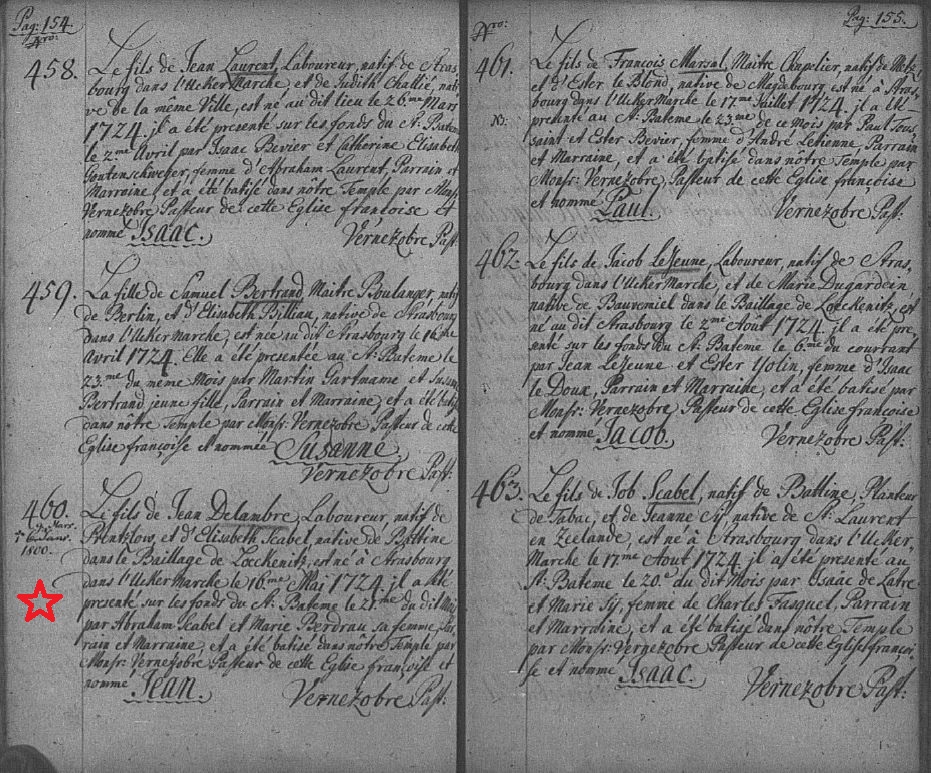 Pag: 154.
Nro:
458. Le fils de Jean Laurent, Laboureur, natif de Stras
bourg dans l'UckerMarche, et de Judith Challié, nati
ve de la même Ville, est né au dit lieu le 26.me Mars
1724. il a été presenté sur les fonds du St: Bateme
le 2.me Avril par Isaac Bevier et Catherine Elisabeth
femme d'Abraham Laurent, Parrain et
Marraine, et a été batisé dans nôtre Temple par Monsr:
Vernezobre Pasteur de cette Eglise francoise et
nommé Isaac. Vernezobre Past:
459. La fille de Samuel Bertrand, Maitre Boulanger, natif
de Berlin, et d'Elisabeth Billian, native de Strasbourg
dans l'UckerMarche, est née au dit Strasbourg le 16.me
Avril 1724. Elle a été presentée au St: Bateme le
23.me du même Mois par Martin Gartmame et Susane
Bertrand jeune fille, Parrain et Marraine, et a été bati
dans nôtre Temple par Monsr: Vernezobre Pasteur de cette
Eglise françoise et nommée Susanne
Vernezobre Past:
460. Le fils de Jean Delambre, Laboureur, natif de
Prentzlow, et d'Elisabeth Scabel, native de Battine
dans le Baillage de Lœckenitz, est né à Strasbourg
dans l'UckerMarche le 16.me Mai 1724. il a été
presenté sur les fonds du St: Bateme le 21.me du dit Mois
par Abraham Scabel et Marie Berdrau sa femme, Par
rain et Marraine, et a été batisé dans nôtre Temple par
Monsr: Vernezobre Pasteur de cette Eglise françoise et
nommé Jean. Vernezobre Past:
1800.
Pag: 155.
Nro:
461. Le fils de François Marsal, Maitre Chapelier, natif de Metz
et d'Ester le Blond, native de Magdebourg est né à Stras,
bourg dans l'UckerMarche le 17.me Juillet 1724. il a été
presenté au St: Bateme le 23.me de ce Mois par Paul Tous,
saint et Ester Bevier, femme d'André Letienne, Parrain
et Marraine, et a été batisé dans nôtre Temple par
Monsr: Vernezobre, Pasteur de cette Eglise françoise
et nommé Paul. Vernezobre Past:
NB:
462. Le fils de Jacob LeJeune, Laboureur, natif de Stras,
bourg dans l'UckerMarche, et de Marie Dugardein
native de Bauremiel dans le Baillage de Lœckenitz, est
né au dit Strasbourg le 2.me Aôut 1724. il a été pre,
senté sur les fonds du St: Bateme le 6.me du courant
par Jean LeJeune et Ester Yolin, femme d'Isaac
le Doux, Parrain et Marraine, et a été batisé par
Monsr: Vernezobre, Pasteur de cette Eglise francoise
et nommé Jacob. Vernezobre Past:
463. Le fils de Job Scabel, natif de Battine, Planteur
de Tabac, et de Jeanne Sy, native de St: Laurent
en Zeelande, est né à Strasbourg dans l'Ucker,
Marche le 17.me Aout 1724. il a été presenté au
St: Bateme le 20.e du dit Mois par Isaac de Latre
et Marie Sy, femme de Charles Fasquel, Parrain
et Marraine, et a été batisé dans nôtre Temple
par Monsr: Vernezobre Pasteur de cette Eglise françoi,
se et nommé Isaac. Vernezobre Past: